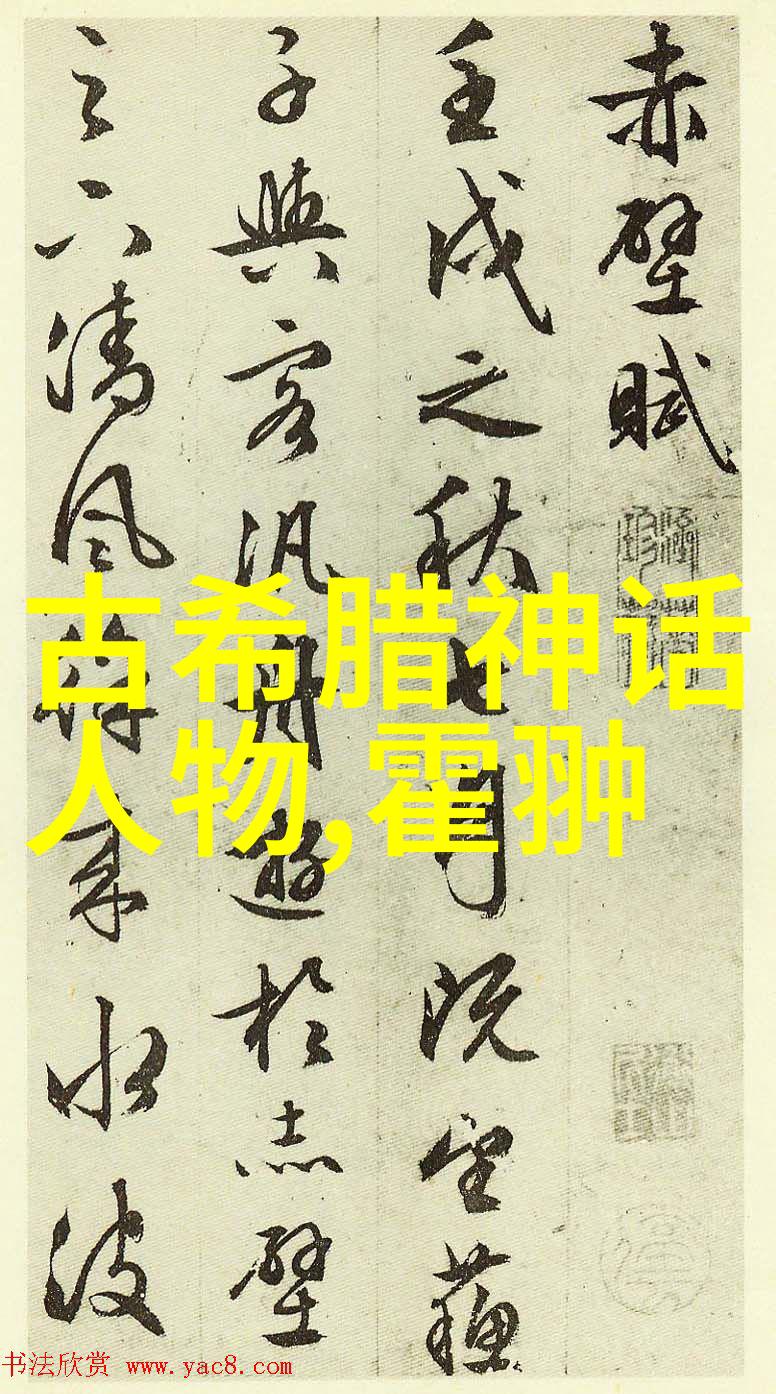 赤壁賦
壬戌之秋七月既望蘓
子與客汎舟遊於赤壁
之下清風徐來水波
古希腊神话
人物,霍翀
书法欣赏 www.yac8.com